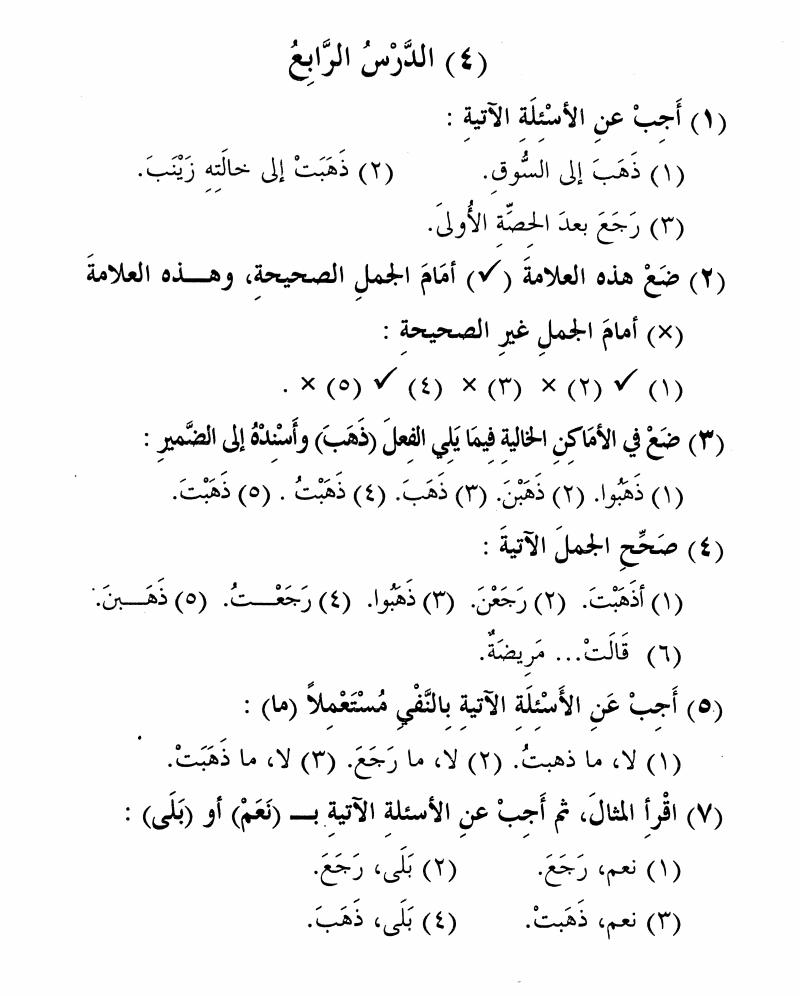 (٤) الدَّرْسُ الرَّابِعُ
(١) أَجِبْ عنِ الأسْئِلَةِ الآتيةِ :
(١) ذَهَبَ إلى السُّوقِ. (٢) ذَهَبَتْ إلى خالَتِهِ زَيْنَبَ.
(٣) رَجَعَ بعدَ الحِصَّةِ الأُولىَ.
(٢) ضَعْ هذه العلامةَ (✓) أمَامَ الجملِ الصحيحةِ، وهـــذه العلامةَ
(×) أمامَ الجملِ غيرِ الصحيحةِ :
(١) ✓ (٢) × (٣) × (٤) ✓ (٥) × .
(٣) ضَعْ في الأمَاكِنِ الخاليةِ فِيمَا يَلِي الفِعلَ (ذَهَبَ) وأَسْنِدْهُ إلى الضَّميرِ :
(١) ذَهَبُوا. (٢) ذَهَبْنَ. (٣) ذَهَبَ. (٤) ذَهَبْتُ . (٥) ذَهَبْتَ.
(٤) صَحِّحِ الجملَ الآتيةَ :
(١) أذَهَبْتَ. (٢) رَجَعْنَ. (٣) ذَهَبُوا. (٤) رَجَعْــتُ. (٥) ذَهَــبنَ.
(٦) قَالَتْ... مَرِيضَةٌ.
(٥) أَجِبْ عَنِ الأَسْئِلَةِ الآتيةِ بِالنَّفْيِ مُسْتَعْمِلاً (ما) :
(١) لا، ما ذهبتُ. (٢) لا، ما رَجَعَ. (٣) لا، ما ذَهَبَتْ.
(٧) اقْرأِ المثالَ، ثم أَجِبْ عنِ الأسئلةِ الآتيةِ بـــ (نَعَمْ) أو (بَلَى) :
(١) نعم، رَجَعَ. (٢) بَلَى، رَجَعَ.
(٣) نعم، ذَهَبتْ. (٤) بَلَى، ذَهَبَ.